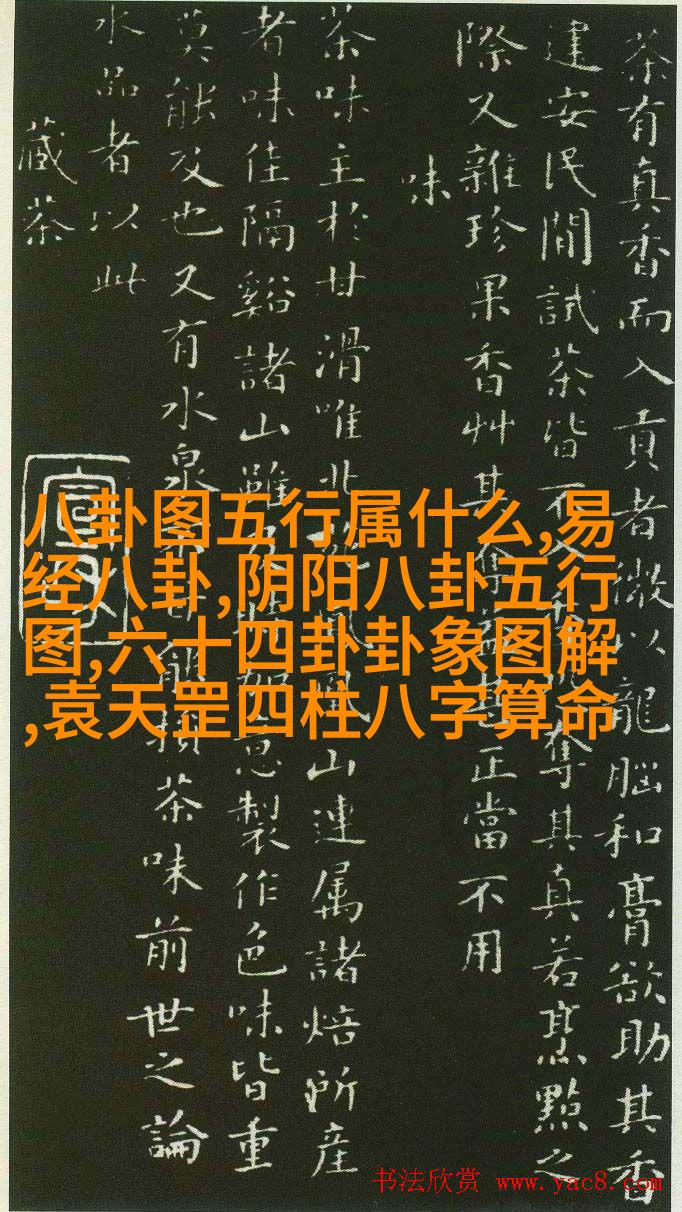 茶有真香而入貢者微以龍腦和膏欲助其香
建安民間試茶皆不入奪其真若烹點之
際又雜珍果香艸其奪正當不用
味
茶味主於甘滑唯北山連属諸焙所産
者味佳隔谿諸山雖製作色味皆重
莫能及也又有水泉能損茶味前世之論
水品者以此
藏茶
八卦图五行属什么,易
经八卦,阴阳八卦五行
图,六十四卦卦象图解
,袁天罡四柱八字算命
书法欣赏 www.yac8.com